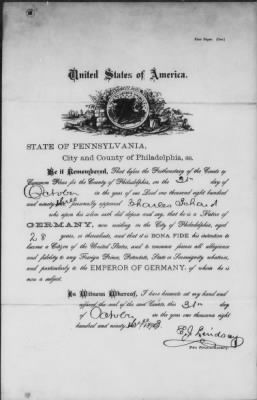 United States of America.
STATE OF PENNSYLVANIA,
City and County of Philadelphia, ss.
Be it Remembered, That before the Prothonotary of the Courts of
Common Pleas for the County of Philadelphia, on the 31st day of
October in the year of our Lord one thousand eight hundred
and ninety personally appeared Charles
who upon his solemn oath did depose and say, that he is a Native of
GERMANY, now residing in the City of Philadelphia, aged
28 years, or thereabouts, and that it is BONA FIDE his intention to
become a Citizen of the United States, and to renounce forever all allegiance
and fidelity to any Foreign Prince, Potentate, State or Sovereignty whatever,
and particularly to the EMPEROR OF GERMANY, of whom he is
now a subject.
In Witness Whereof, I have hereunto set my hand and
affixed the seal of the said Courts, this 31st day
of October in the year one thousand eight
hundred and ninety
Pro Prothonotary.